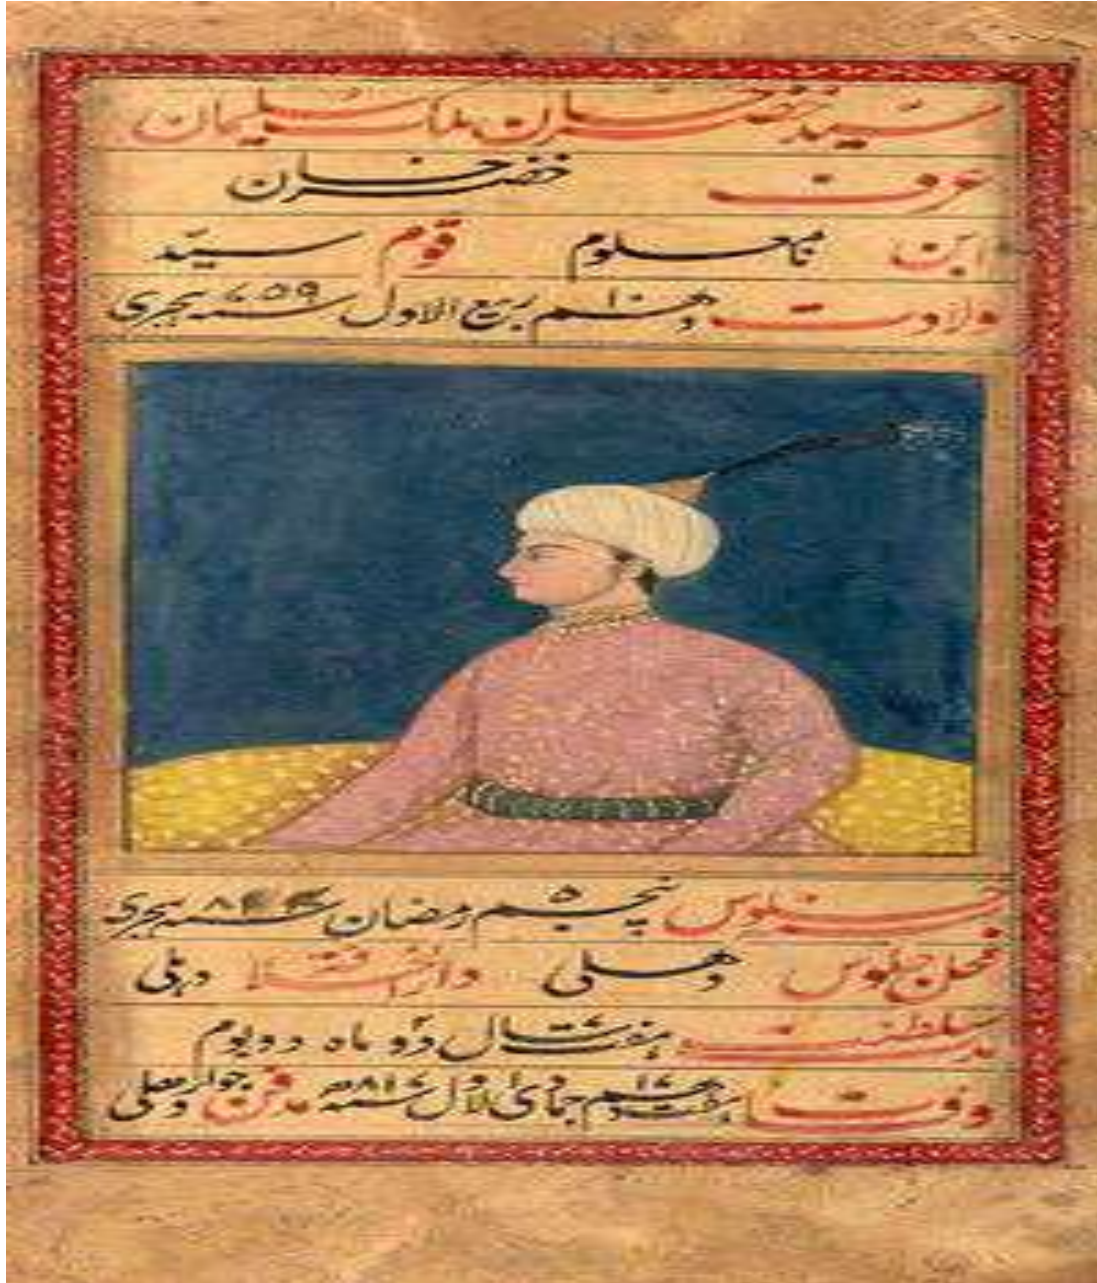 سید خضر خان ملک سلیمان
عرف خضر خان
ابن نامعلوم قوم سید
ولادت دهم ۱۰ ربیع الاول سنه ۷۵۹ هجری
جلوس پنجم ۵ رمضان سنه هجری
محل جلوس دهلی دار دهلی
سلطنت هفت ۷ سال دو ۲ ماه دو یوم
وفات هفتدهم ۱۷ جمادی الاول سنه مدفن جوار دهلی